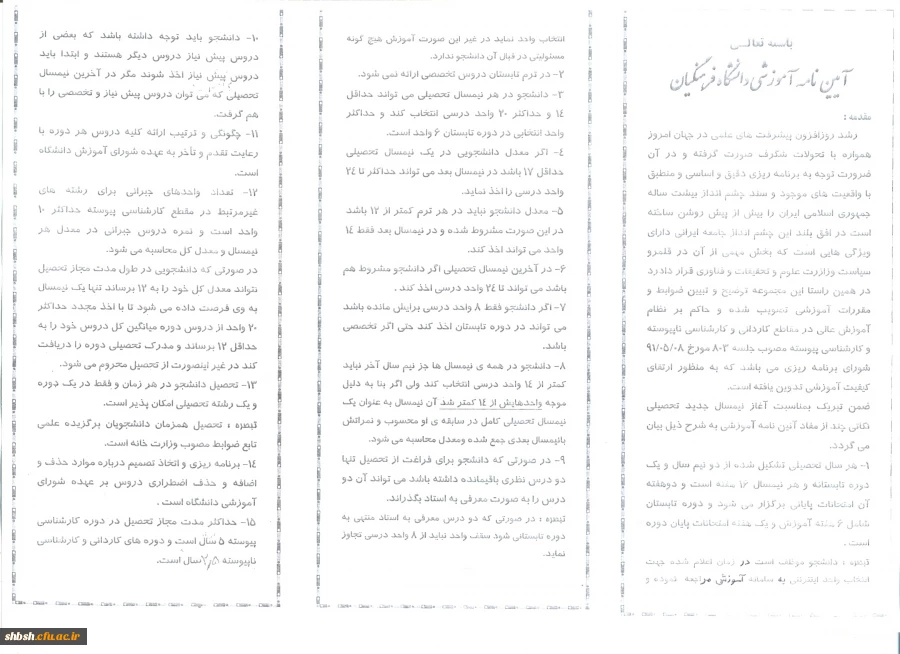 باسمه تعالی
آیین نامه آموزشی دانشگاه فرهنگیان
مقدمه :
رشد روزافزون پیشرفت های علمی در جهان امروز
همواره با تحولات شگرف صورت گرفته و در آن
ضرورت توجه به برنامه ریزی دقیق و اساسی و منطبق
با واقعیت های موجود و سند چشم انداز بیست ساله
جمهوری اسلامی ایران را بیش از پیش روشن ساخته
است در افق بلند این چشم انداز جامعه ایرانی دارای
ویژگی هایی است که بخش مهمی از آن در قلمرو
سیاست وزارت علوم و تحقیقات و فناوری قرار دارد
در همین راستا این مجموعه توضیح و تبیین ضوابط و
مقررات آموزشی تصویب شده و حاکم بر نظام
آموزش عالی در مقاطع کاردانی و کارشناسی ناپیوسته
و کارشناسی پیوسته مصوب جلسه ۸۰۳ مورخ ۹۱/۰۵/۰۸
شورای برنامه ریزی می باشد که به منظور ارتقای
کیفیت آموزشی تدوین یافته است.
ضمن تبریک بمناسبت آغاز نیمسال جدید تحصیلی
نکاتی چند از مفاد آئین نامه آموزشی به شرح ذیل بیان
می گردد.
۱- هر سال تحصیلی تشکیل شده از دو نیم سال و یک
دوره تابستانه و هر نیمسال ۱۶ هفته است و دوهفته
آن امتحانات پایانی برگزار می شود و دوره تابستان
شامل ۶ هفته آموزش و یک هفته امتحانات پایان دوره
است .
تبصره : دانشجو موظف است در زمان اعلام شده جهت
انتخاب واحد اینترنتی به سامانه آموزش مراجعه نموده و
انتخاب واحد نماید در غیر این صورت آموزش هیچ گونه
مسئولیتی در قبال آن دانشجو ندارد.
۲- در ترم تابستان دروس تخصصی ارائه نمی شود.
۳- دانشجو در هر نیمسال تحصیلی می تواند حداقل
۱۴ و حداکثر ۲۰ واحد درسی انتخاب کند و حداکثر
واحد انتخابی در دوره تابستان ۶ واحد است.
۴- اگر معدل دانشجویی در یک نیمسال تحصیلی
حداقل ۱۷ باشد در نیمسال بعد می تواند حداکثر تا ۲۴
واحد درسی را اخذ نماید.
۵- معدل دانشجو نباید در هر ترم کمتر از ۱۲ باشد
در این صورت مشروط شده و در نیمسال بعد فقط ۱۴
واحد می تواند اخذ کند.
۶- در آخرین نیمسال تحصیلی اگر دانشجو مشروط هم
باشد می تواند تا ۲۴ واحد درسی اخذ کند .
۷- اگر دانشجو فقط ۸ واحد درسی برایش مانده باشد
می تواند در دوره تابستان اخذ کند حتی اگر تخصصی
باشد.
۸- دانشجو در همه ی نیمسال ها جز نیم سال آخر نباید
کمتر از ۱۴ واحد درسی انتخاب کند ولی اگر بنا به دلیل
موجه واحدهایش از ۱۴ کمتر شد آن نیمسال به عنوان یک
نیمسال تحصیلی کامل در سابقه ی او محسوب و نمراتش
بانیمسال بعدی جمع شده ومعدل محاسبه می شود.
۹- در صورتی که دانشجو برای فراغت از تحصیل تنها
دو درس نظری باقیمانده داشته باشد می تواند آن دو
درس را به صورت معرفی به استاد بگذراند.
تبصره : در صورتی که دو درس معرفی به استاد منتهی به
دوره تابستانی شود سقف واحد نباید از ۸ واحد درسی تجاوز
نماید.
۱۰- دانشجو باید توجه داشته باشد که بعضی از
دروس پیش نیاز دروس دیگر هستند و ابتدا باید
دروس پیش نیاز اخذ شوند مگر در آخرین نیمسال
تحصیلی که می توان دروس پیش نیاز و تخصصی را با
هم گرفت.
۱۱- چگونگی و ترتیب ارائه کلیه دروس هر دوره با
رعایت تقدم و تأخر به عهده شورای آموزش دانشگاه
است.
۱۲- تعداد واحدهای جبرانی برای رشته های
غیرمرتبط در مقطع کارشناسی پیوسته حداکثر ۱۰
واحد است و نمره دروس جبرانی در معدل هر
نیمسال و معدل کل محاسبه می شود.
در صورتی که دانشجویی در طول مدت مجاز تحصیل
نتواند معدل کل خود را به ۱۲ برساند تنها یک نیمسال
به وی فرصت داده می شود تا با اخذ مجدد حداکثر
۲۰ واحد از دروس دوره میانگین کل دروس خود را به
حداقل ۱۲ برساند و مدرک تحصیلی دوره را دریافت
کند در غیر اینصورت از تحصیل محروم می شود.
۱۳- تحصیل دانشجو در هر زمان و فقط در یک دوره
و یک رشته تحصیلی امکان پذیر است.
تبصره : تحصیل همزمان دانشجویان برگزیده علمی
تابع ضوابط مصوب وزارت خانه است.
۱۴- برنامه ریزی و اتخاذ تصمیم درباره موارد حذف و
اضافه و حذف اضطراری دروس بر عهده شورای
آموزشی دانشگاه است .
۱۵- حداکثر مدت مجاز تحصیل در دوره کارشناسی
پیوسته ۵ سال است و دوره های کاردانی و کارشناسی
ناپیوسته ۲٫۵ سال است.
shbsh.cfu.ac.ir